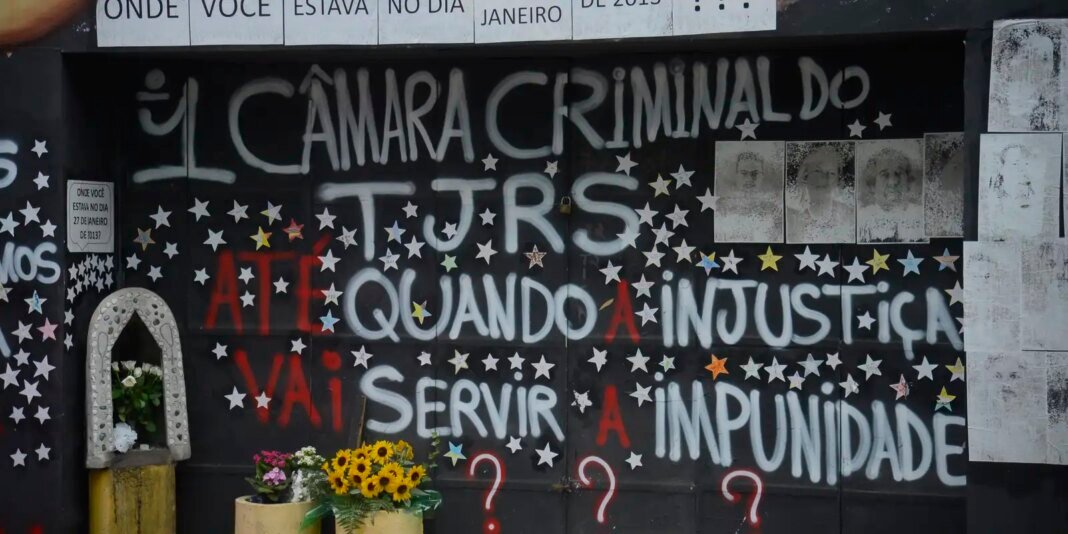 ONDE VOCÊ ESTAVA NO DIA JANEIRO DE 2013 ???
1 CÂMARA CRIMINAL DO
TJRS
ATÉ QUANDO A INJUSTIÇA
VAI SERVIR A IMPUNIDADE
? ? ?
ONDE VOCÊ
ESTAVA NO DIA
27 DE JANEIRO
DE 2013?
MOS